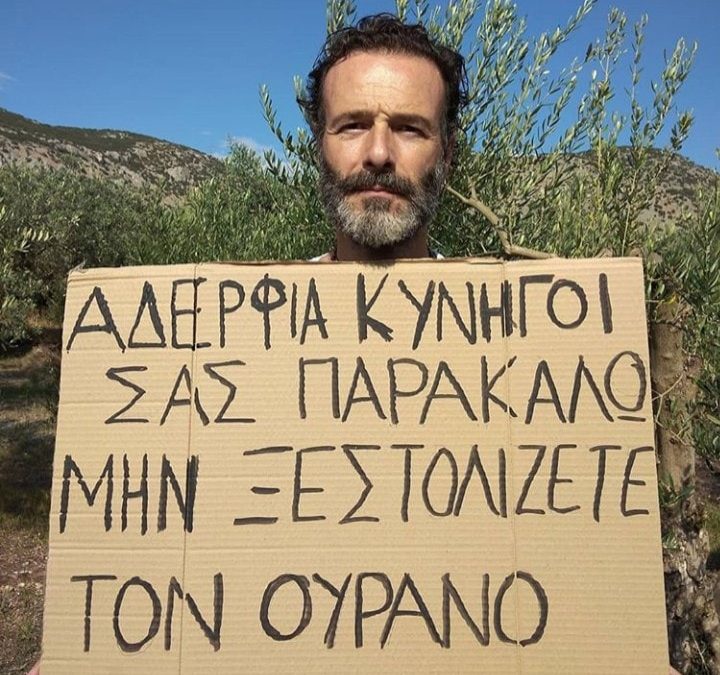 ΑΔΕΡΦΙΑ ΚΥΝΗΓΟΙ
ΣΑΣ ΠΑΡΑΚΑΛΩ
ΜΗΝ ΞΕΣΤΟΛΙΖΕΤΕ
ΤΟΝ ΟΥΡΑΝΟ